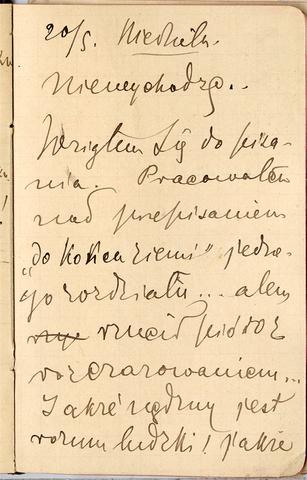 20/5. Niedziela.
Niewychodzę..
Wziąłem się do pisa-
nia. Pracowałem
nad przepisaniem
"do końca ziemi" jedne-
go rozdziału... alem
rzucił pióro z
rozczarowaniem...
Jakże nędzny jest
rozum ludzki! jakże